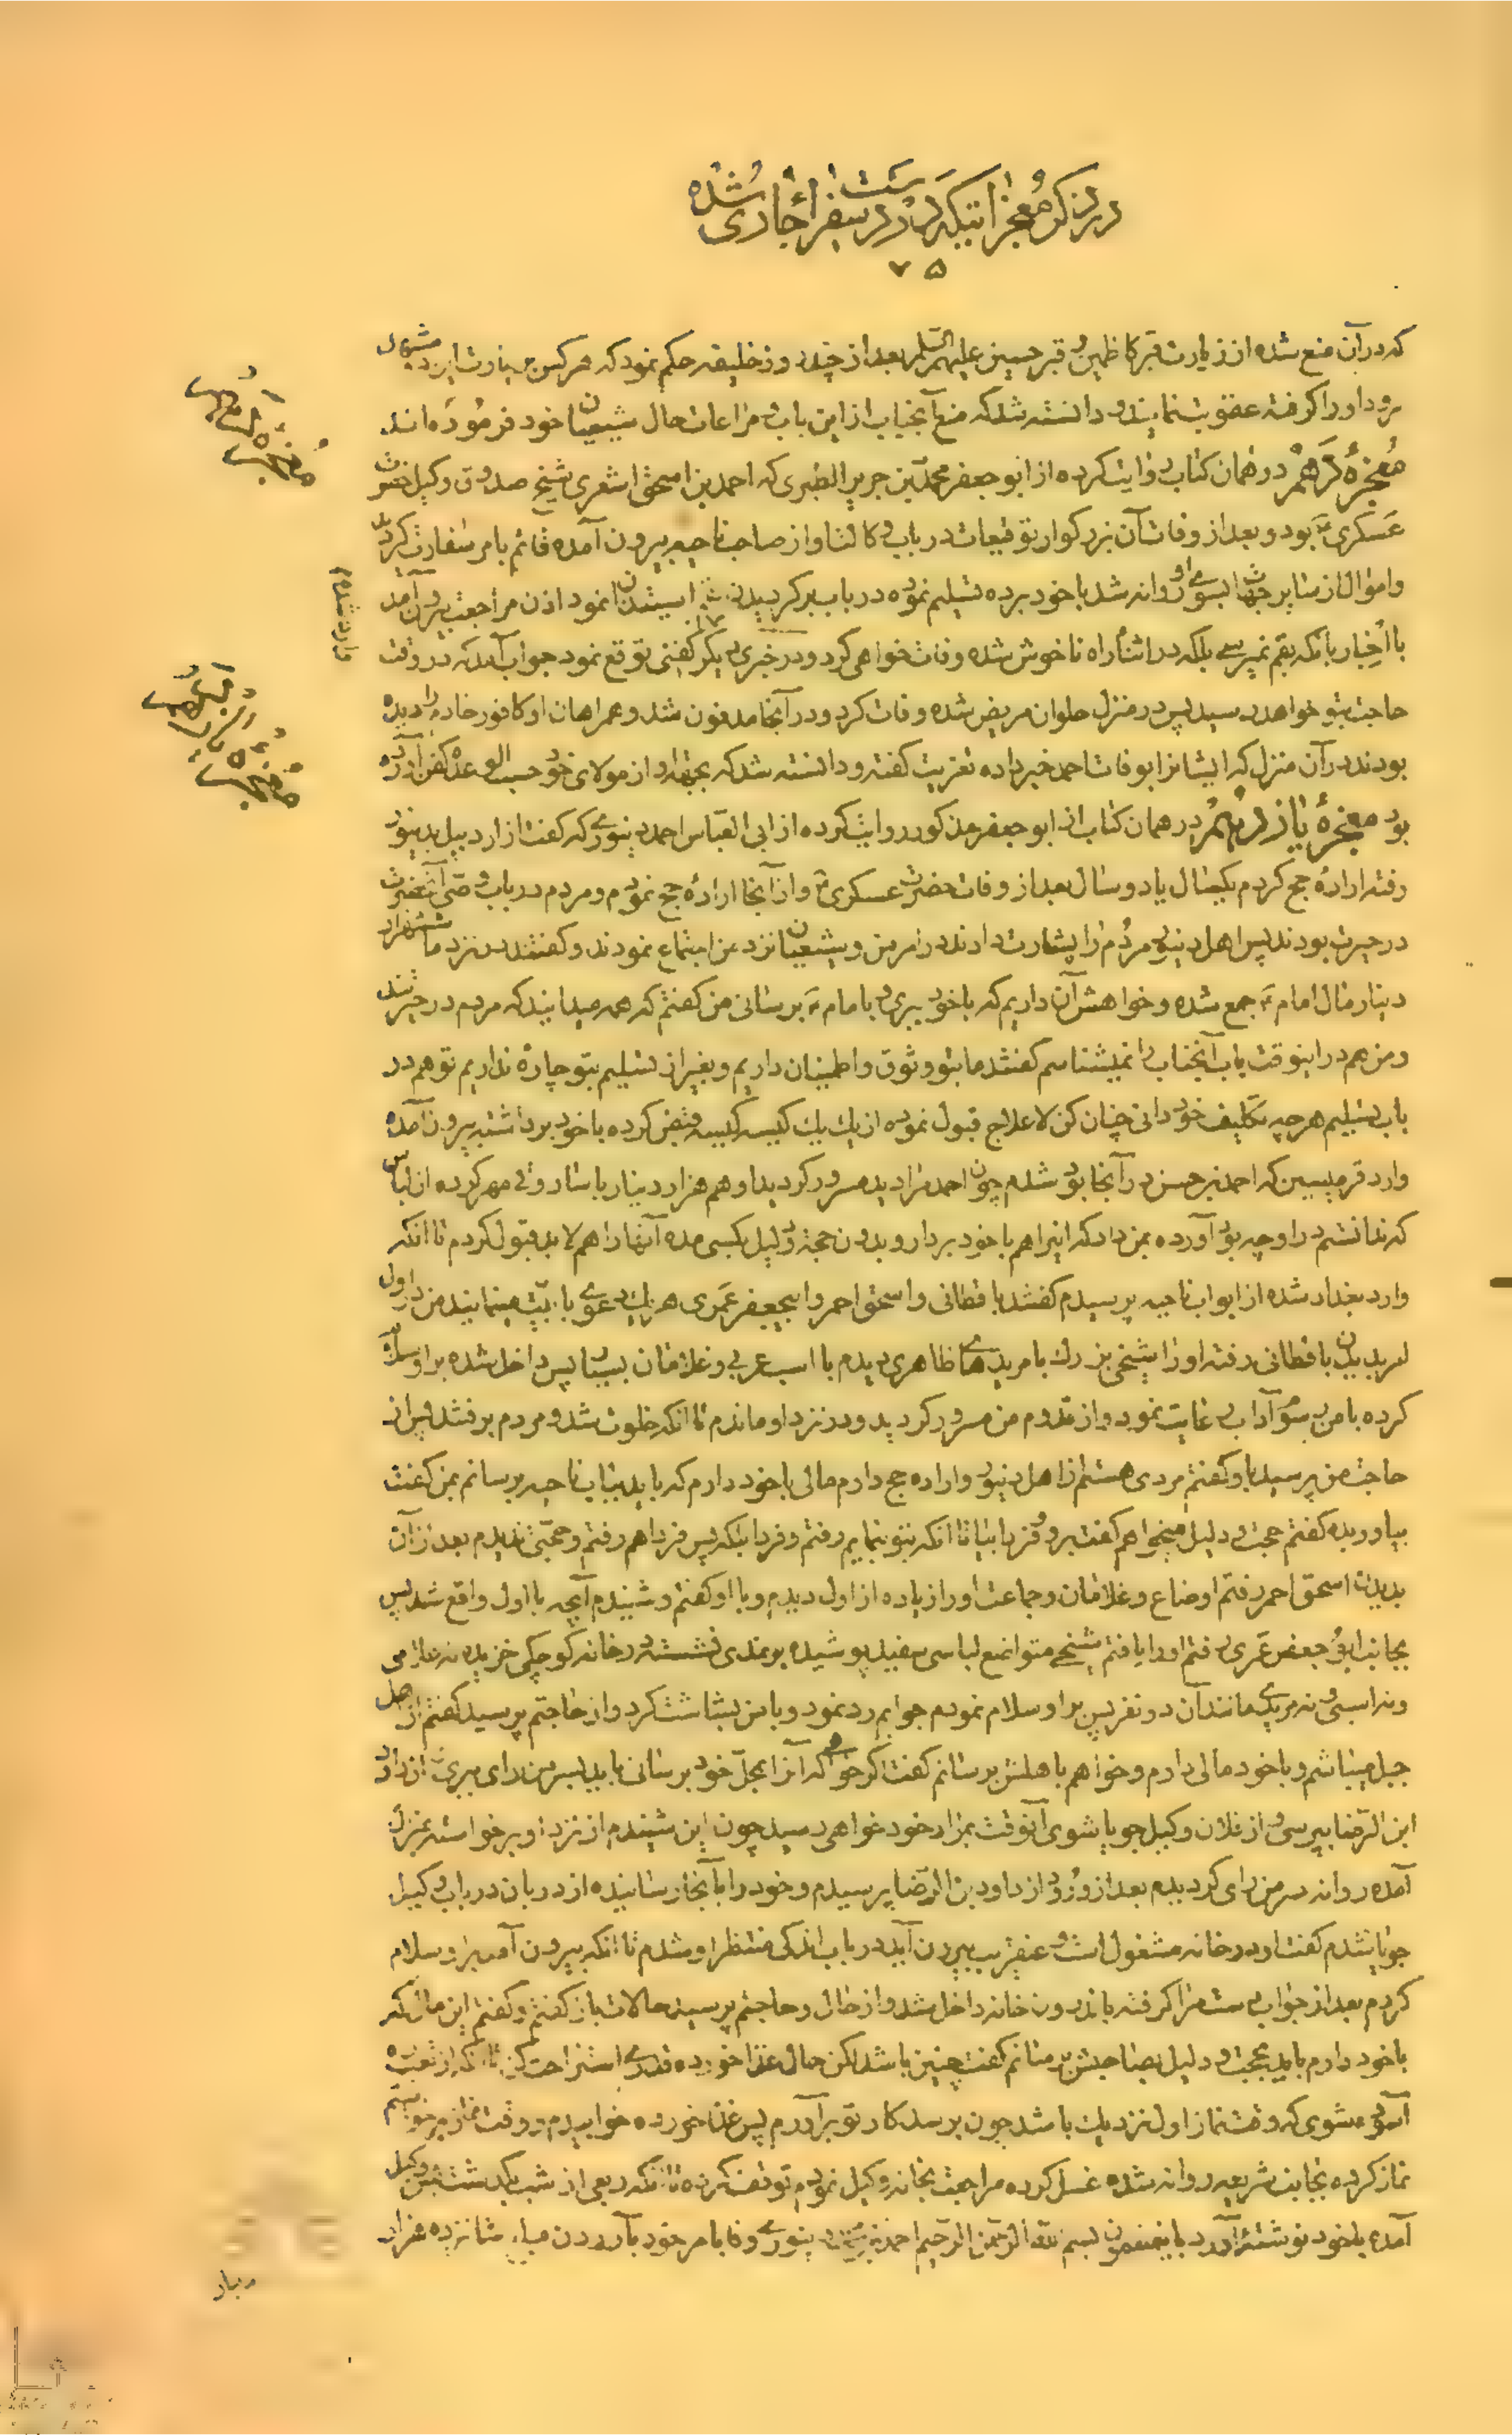 در ذکر معجزاتیکه در دست سفراء جاری شده
۷۵
که در آن منع شده از زیارت قبر کاظمین و قبر حسین علیهم السلام بعد از چند روز خلیفه حکم نمود که هر کس بزیارت این دو مشهد
برود او را گرفته عقوبت نمایند و دانسته شد که منع آنجناب از این باب و مراعات حال شیعیان خود فرموده‌اند
معجزهٔ دهم در همان کتاب روایت کرده از ابو جعفر محمد بن جریر الطبری که احمد بن اسحق اشعری شیخ صدوق وکیل حضرت
عسکری ع بود و بعد از وفات آن بزرگوار توقیعات در باب وکالت او از صاحب ناحیه بیرون آمده قائم بامر سفارت گردید
و اموال از سایر جهات بسوی او روانه شد با خود برده تسلیم نموده در باب برگردیدن استیذان نمود اذن مراجعت بیرون آمد
با اخبار بانکه بقم نمیرسی بلکه در اثناء راه ناخوش شده وفات خواهی کرد و در خبر دیگر کفنی توقع نمود جواب آمد که در وقت
حاجت بتو خواهد رسید پس در منزل حلوان مریض شده وفات کرد و در آنجا مدفون شد و همراهان او کافور خادم را دیده
بودند در آن منزل که ایشانرا بوفات احمد خبر داده تعزیت گفته و دانسته شد که بجهة او از مولای خود حسب الوعده کفن آورده
بود معجزهٔ یازدهم در همان کتاب از ابو جعفر مذکور روایت کرده از ابی العباس احمد دینوری که گفت از اردبیل بدینور
رفته ارادهٔ حج کردم یکسال یا دو سال بعد از وفات حضرت عسکری ع و از آنجا ارادهٔ حج نمودم و مردم در باب وصی آنحضرت
در حیرت بودند پس اهل دینور مردم را بشارت دادند در امر من و شیعیان نزد من اجتماع نمودند و گفتند در نزد ما شانزده هزار
دینار مال امام ع جمع شده و خواهش آن داریم که با خود ببری و بامام ع برسانی من گفتم که همه میدانید که مردم در حیرتند
و من هم در اینوقت باب آنجناب را نمیشناسم گفتند ما بتو وثوق و اطمینان داریم و بغیر از تسلیم بتو چاره نداریم تو هم در
باب تسلیم هر چه تکلیف خود دانی چنان کن لا علاج قبول نموده از یک یک کیسه کیسه قبض کرده با خود برداشته بیرون آمده
وارد قرمیسین که احمد بن حسن در آنجا بود شدم چون احمد مرا دید مسرور گردید او هم هزار دینار با شاروقی مهر کرده از لباس
که ندانستم در او چه بود آورده بمن داد که اینرا هم با خود بردار و بدون حجة و دلیل بکسی مده آنها را هم لابد قبول کردم تا انکه
وارد بغداد شده از ابواب ناحیه پرسیدم گفتند باقطانی و اسحق احمر و ابیجعفر عمری هر یک دعوی بابیت مینمایند من در اول
لدی بدیدن باقطانی رفته او را شیخی بزرک با مریدهای ظاهری دیدم با اسب عربی و غلامان بسیار پس داخل شده بر او سلام
کرده با من رسوم آداب رعایت نمود و از قدوم من مسرور گردید و در نزد او ماندم تا انکه خلوت شد و مردم برفتند پس از
حاجت من پرسید باو گفتم مردی هستم از اهل دینور و اراده حج دارم مالی با خود دارم که باید بباب ناحیه برسانم بمن گفت
بیاور بده گفتم حجت و دلیل میخواهم گفت برو فردا بیا تا انکه بتو بنمایم رفتم و فردا بلکه پس فردا هم رفتم و حجتی ندیدم بعد از آن
بدیدن اسحق احمر رفتم اوضاع و غلامان و جماعت او را زیاده از اول دیدم و با او گفتم و شنیدم آنچه با اول واقع شد پس
بجانب ابو جعفر عمری رفتم او را یافتم شیخی متواضع لباسی سفید پوشیده بر نمدی نشسته در خانه کوچکی خزیده نه غلامی
و نه اسبی و نه مریدی مانند آن دو نفر پس بر او سلام نمودم جوابم رد نمود و با من بشاشت کرد و از حاجتم پرسید گفتم از اهل
جبل میباشم و با خود مالی دارم و خواهم باهلش برسانم گفت اگر خواهی که آنرا بمحل خود برسانی باید بسر من رای میروی از دار
ابن الرضا بپرسی و از فلان وکیل جویا شوی آنوقت بمراد خود خواهی رسید چون این شنیدم از نزد او برخواسته بمنزل
آمده روانه سر من رای گردیدم بعد از ورود از دار ابن الرضا پرسیدم و خود را بآنجا رسانیده از دربان در باب وکیل
جویا شدم گفت او در خانه مشغول است و عنقریب بیرون آید در باب اندکی منتظر او شدم تا انکه بیرون آمد بر او سلام
کردم بعد از جواب دست مرا گرفته باندرون خانه داخل شد و از حال و حاجتم پرسید حالات باز گفتم و گفتم این مال که
با خود دارم باید بحجت و دلیل بصاحبش برسانم گفت چنین باشد لکن حال غذا خورده قدری استراحت کن تا انکه از تعب راه
آسوده شوی که وقت نماز اول نزدیک باشد چون برسد کار تو برآورم پس غذا خورده خوابیدم در وقت نماز برخواستم
نماز کرده بجانب شریعه روانه شده غسل کرده مراجعت بخانه وکیل نمودم توقف کرده تا انکه ربعی از شب بگذشت پس وکیل
آمده با خود نوشته آورد باینمضمون بسم الله الرحمن الرحیم احمد بن محمد دینوری وفا بامر خود بآوردن مبلغ شانزده هزار
دینار
معجزهٔ دهم
معجزهٔ یازدهم